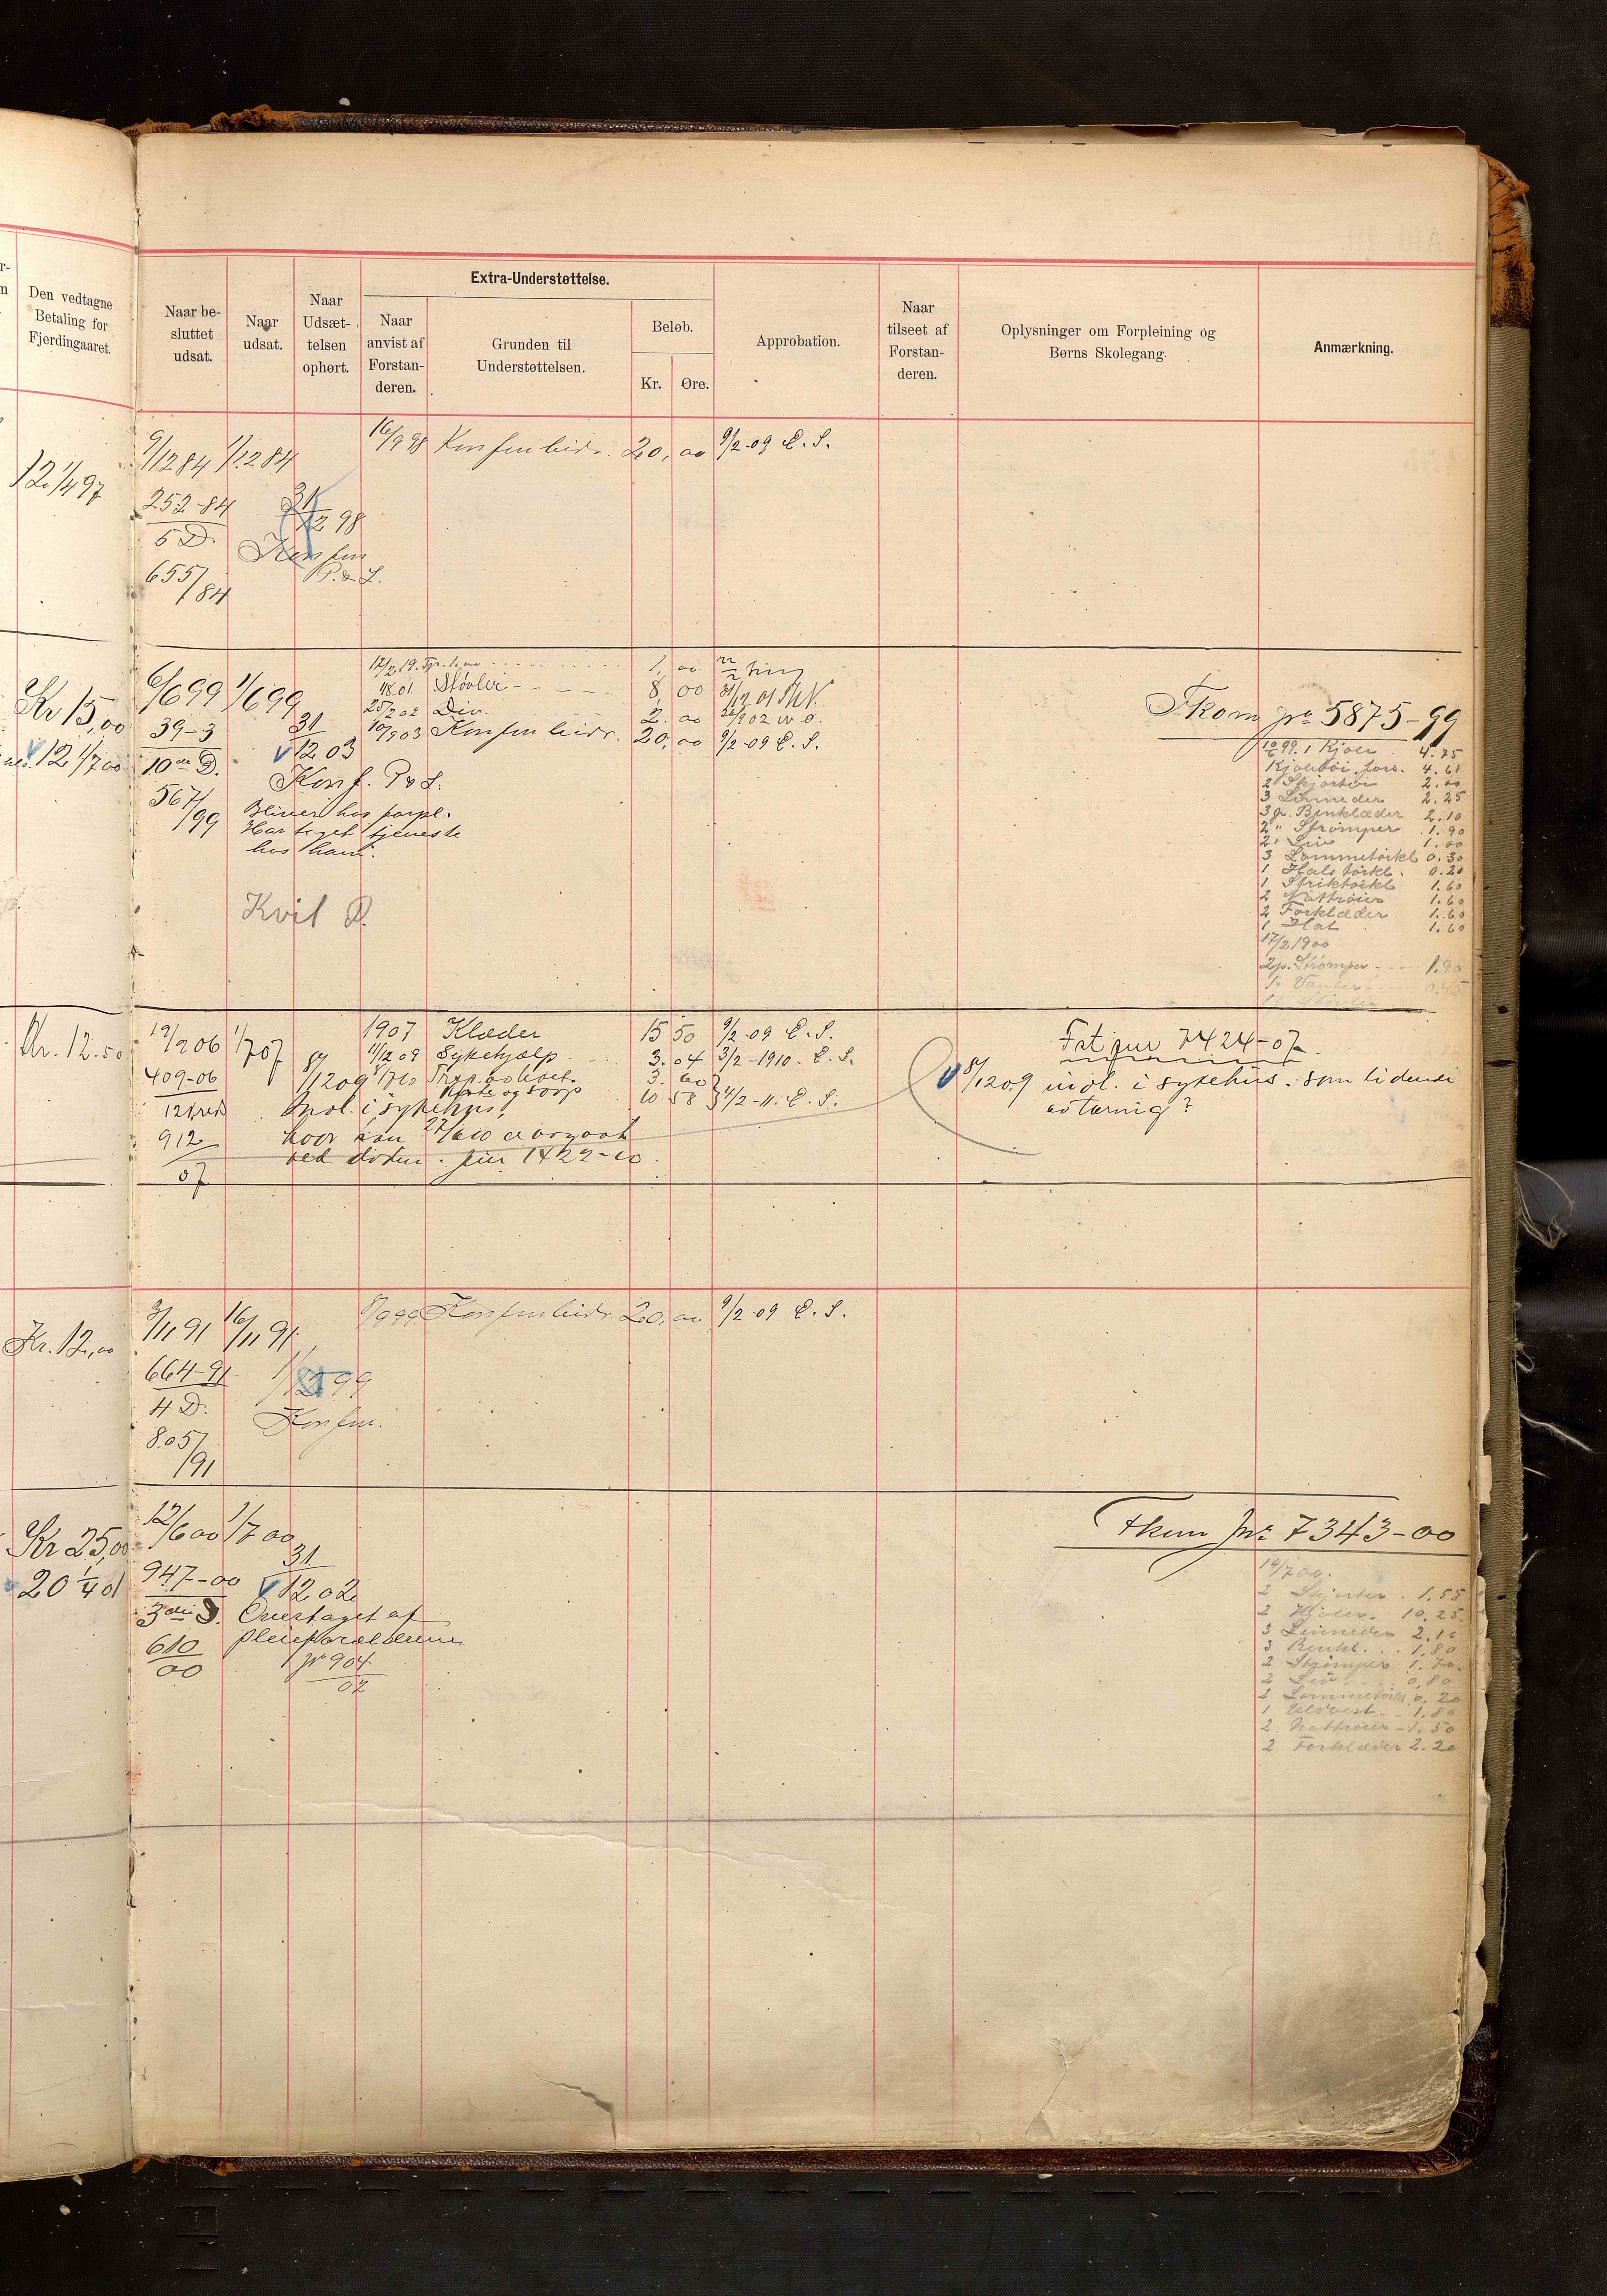 Den vedtagne
Betaling for
Fjerdingaaret.
Naar be-
sluttet
udsat.
Naar
udsat.
Naar
Udsæt-
telsen
ophørt.
Extra-Understøttelse.
Naar
anvist af
Forstan-
deren.
Grunden til
Understøttelsen.
Beløb.
Kr. Øre.
Approbation.
Naar
tilseet af
Forstan-
deren.
Oplysninger om Forpleining og
Børns Skolegang.
Anmærkning.
12 1/4 97
9/12 84 1/12 84
16/9 98 Konfm bidr. 20, 00 9/2-09 C. S.
252-84
31/12 98
5 D.
Konfm
P. & L.
655/84
Kr 15,00
12 1/7 00
6/6 99 1/6 99
39-3
31/12 03
10de D.
Konf. P & L.
567/99
Bliver hos forpl.
Har taget tjeneste
hos ham.
Kvit
1, 00
1/8 01 Støvler 8 00
25/2 02 Div. 2. 00
10/9 03 Konfm bidr. 20, 00 9/2-09 C. S.
Fkom jno 5875-99
1 Kjole 4.75
Kjoletøi, fors. 4.68
2 Skjørter 2.00
3 Linneder 2.25
3 p. Benklæder 2.10
2 " Strømper 1.90
2 " Liv 1.00
3 Lommetørkl 0.30
1 Halstørkl. 0.20
1 Striktørkl 1.60
2 Nattrøier 1.60
2 Forklæder 1.60
1 Hat 1.60
17/2 1900
2 p. Strømper 1.90
1 " Vanter 0.45
Kr. 12.50
19/2 06 1/7 07
409-06
12te D
912
07
8/12 09
Indl. i sykehus,
hvor han 27/6 10 er avgaat
ved døden. jnr 1422-10.
1907 Klæder 15 50 9/2-09 C. S.
11/12 09 Sykehjælp 3.04 3/2-1910. C. S.
3. 60
Kiste og svøp 10 58 4/2-11. C. S.
Fat jnr 7424-07.
8/12 09 indl. i sykehus som lidende
av tæring?
Kr. 12,00
3/11 91 16/11 91
Konfm bidr. 20, 00 9/2-09 C. S.
664-91
1/12 99
4 D.
Konfm.
805/91
Kr 25,00
20 1/4 01
12/6 00 1/7 00
947-00
31/12 02
3die D. Overtaget af
pleieforældrene
610
00
jr 904
02
Fkom Jnr 7343-00
14/7 00.
2 Skjorter 1,55
2 Kjoler 10,25
3 Linneder 2.10
3 Benkl. 1,80
2 Strømper 1.70
2 Liv 0,80
2 Lommetørkl 0,20
1 Uldvest 1.80
2 Nattrøier 1.50
2 Forklæder 2.20